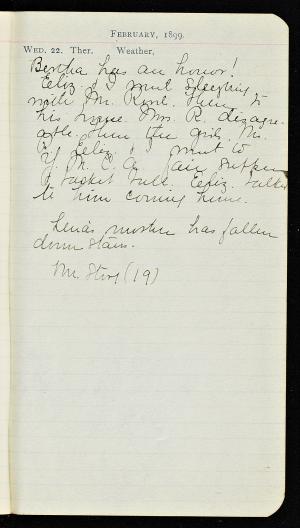 FEBRUARY, 1899.
WED. 22. Ther. Weather,
Bertha has an honor!
Eliz. & I went sleighing
with Mr. Then to
his home. Mrs. R. disagre-
able. Then the girls, Mr.
Y Eliz. & I went to
Y. M. C. A. fair. Supper
& basket ball. Eeliz. talks
to him coming home.
Lena's mother has fallen
down stairs.
Mr. (19)